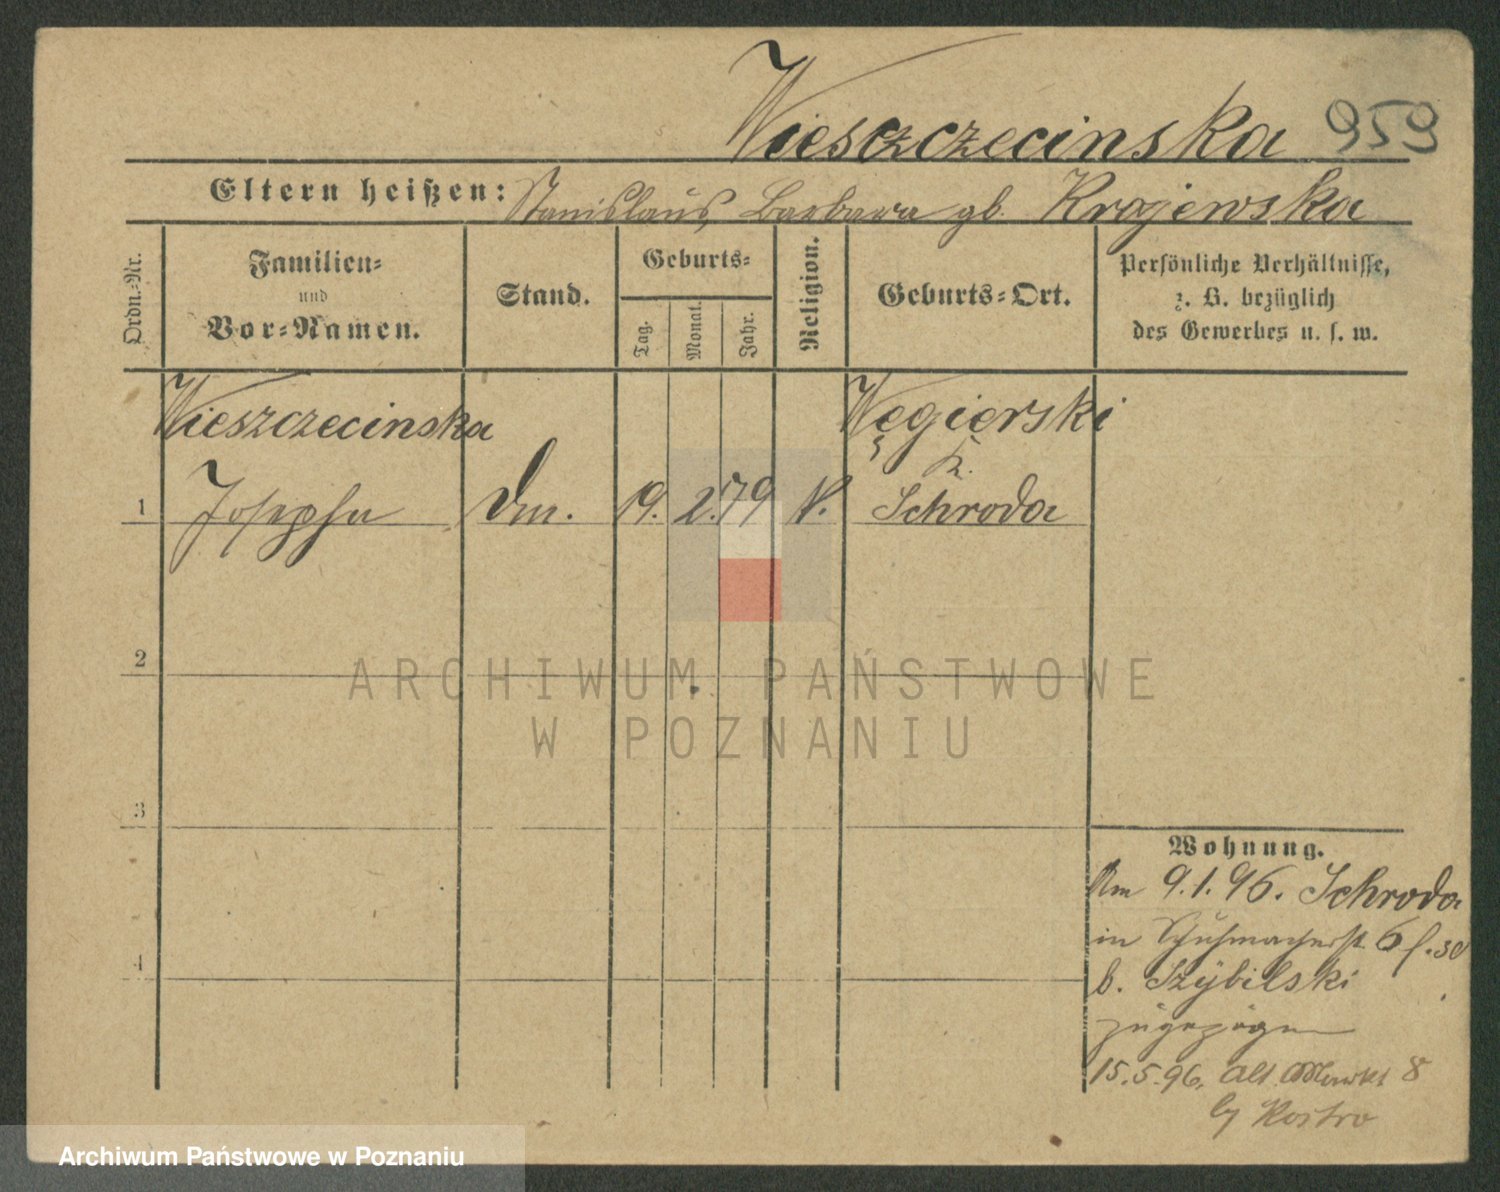 Wieszczecinska 959
Eltern heißen: Stanislaus, Barbara gb. Krajewska
Ordn.-Nr.
Familien-
und
Vor-Namen.
Stand.
Geburts-
Tag.
Monat.
Jahr.
Religion.
Geburts-Ort.
Persönliche Verhältnisse,
z. B. bezüglich
des Gewerbes u. s. w.
Wieszczecinska
Węgierski
K.
1 Josepha Dm. 19. 2. 79 k. Schroda
2
3
4
Wohnung.
Am 9.1.96. Schroda
in Schuhmacherst. 6
b. Szybilski
zugezogen
15.5.96. Alt. Markt 8
by Kostro
ARCHIWUM PAŃSTWOWE
W POZNANIU
Archiwum Państwowe w Poznaniu